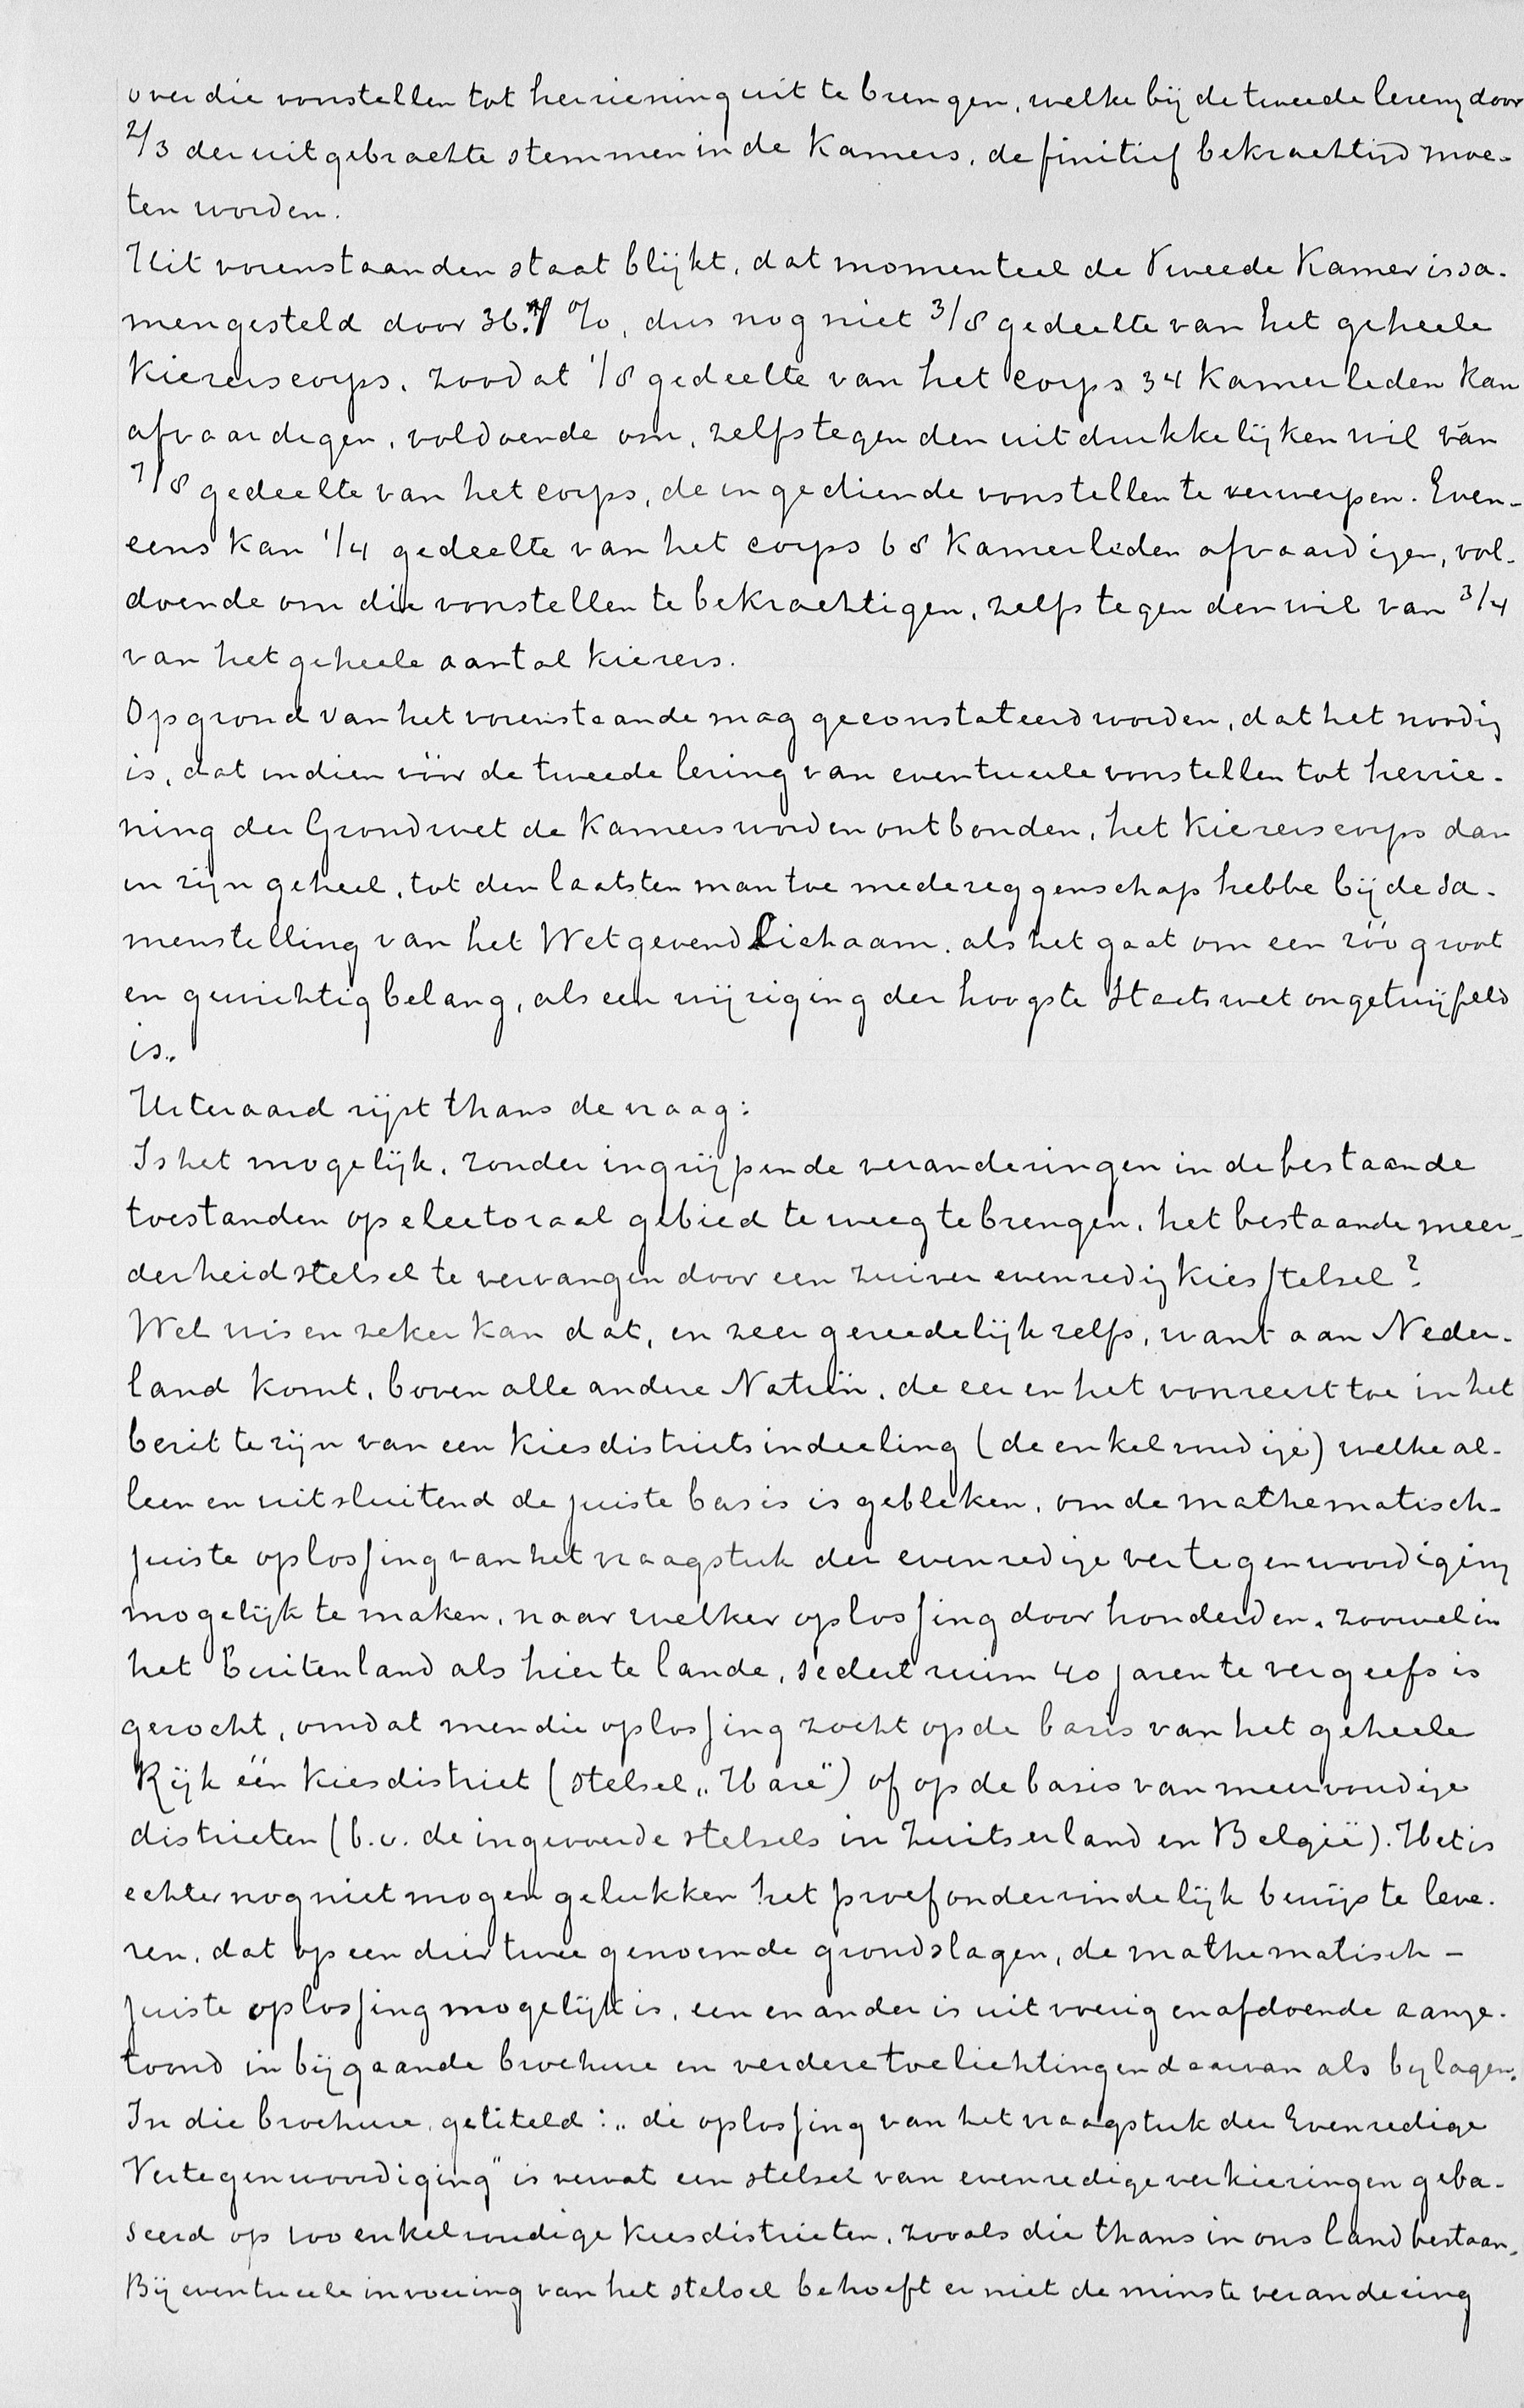 over die voorstellen tot herziening uit te brengen, welke bij de tweede lezing door
2/3 der uitgebrachte stemmen in de Kamers, definitief bekrachtigd moe-
ten worden.
Uit vorenstaanden staat blijkt, dat momenteel de Tweede Kamer is sa-
mengesteld door 36.7 %, dus nog niet 3/8 gedeelte van het geheele
Kiezerscorps, zoodat 1/8 gedeelte van het corps 34 Kamerleden kan
afvaardigen, voldoende om, zelfs tegen den uitdrukkelijken wil van
7/8 gedeelte van het corps, de ingediende voorstellen te verwerpen. Even-
eens kan 1/4 gedeelte van het corps 68 Kamerleden afvaardigen, vol-
doende om die voorstellen te bekrachtigen, zelfs tegen den wil van 3/4
van het geheele aantal kiezers.
Op grond van het vorenstaande mag geconstateerd worden, dat het noodig
is, dat indien vóór de tweede lezing van eventueele voorstellen tot herzie-
ning der Grondwet de Kamers worden ontbonden, het Kiezerscorps dan
in zijn geheel, tot den laatsten man toe medezeggenschap hebbe bij de sa-
menstelling van het Wetgevend Lichaam, als het gaat om een zóó groot
en gewichtig belang, als een wijziging der hoogste Staatswet ongetwijfeld
is.
Uiteraard rijst thans de vraag:
Is het mogelijk, zonder ingrijpende veranderingen in de bestaande
toestanden op electoraal gebied te weeg te brengen, het bestaande meer-
derheidstelsel te vervangen door een zuiver evenredig Kiesstelsel?
Wel wis en zeker kan dat, en zeer gereedelijk zelfs, want aan Neder-
land komt, boven alle andere Natiën, de eer en het voorrecht toe in het
bezit te zijn van een Kiesdistrictsindeeling (de enkelvoudige) welke al-
leen en uitsluitend de juiste basis is gebleken, om de mathematisch-
juiste oplossing van het vraagstuk der evenredige vertegenwoordiging
mogelijk te maken, naar welker oplossing door honderden, zoowel in
het buitenland als hier te lande, sedert ruim 40 jaren te vergeefs is
gezocht, omdat men die oplossing zocht op de basis van het geheele
Rijk één Kiesdistrict (stelsel "Hare") of op de basis van meervoudige
districten (b.v. de ingevoerde stelsels in Zwitserland en België). Het is
echter nog niet mogen gelukken het proefondervindelijk bewijs te leve-
ren, dat op een dier twee genoemde grondslagen, de mathematisch-
juiste oplossing mogelijk is, een en ander is uitvoerig en afdoende aange-
toond in bijgaande brochure en verdere toelichtingen daarvan als bylagen.
In die brochure, getiteld: "de oplossing van het vraagstuk der Evenredige
Vertegenwoordiging" is vervat een stelsel van evenredige verkiezingen geba-
seerd op 100 enkelvoudige Kiesdistricten, zooals die thans in ons land bestaan.
Bij eventueele invoering van het stelsel behoeft er niet de minste verandering